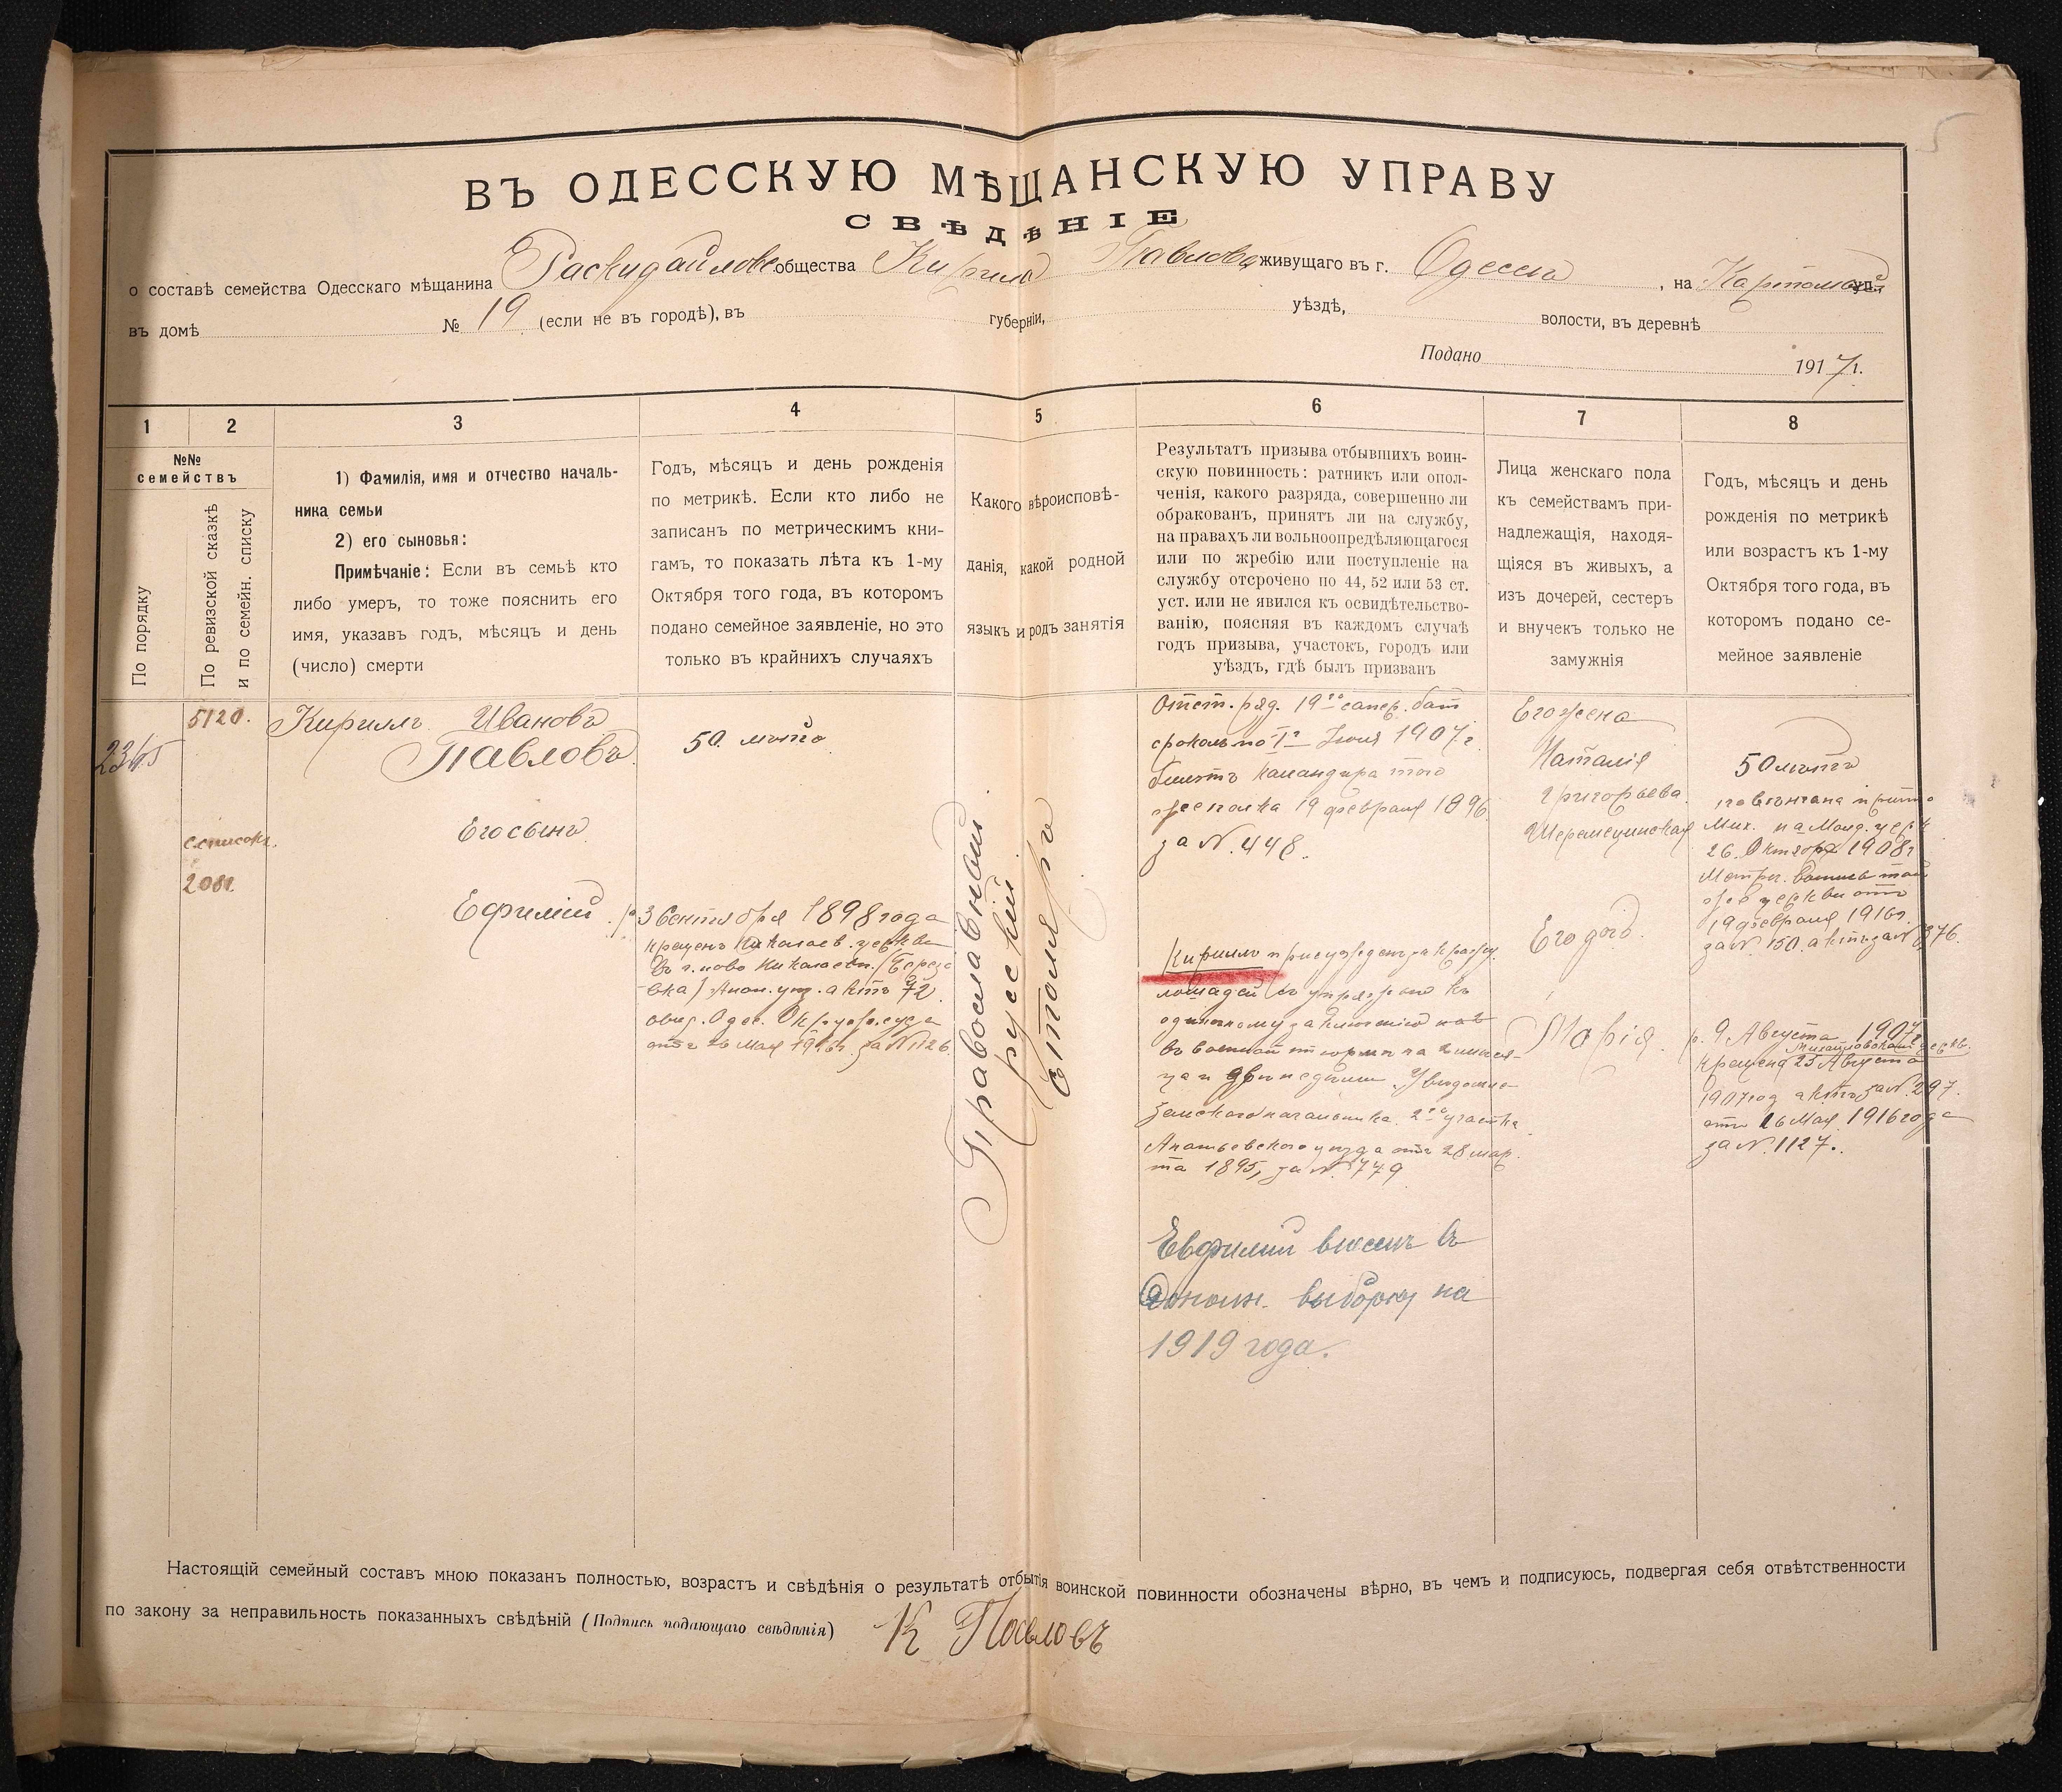 5
ВЪ ОДЕССКУЮ МѢЩАНСКУЮ УПРАВУ
СВѢДѢНІЕ
о составѣ семейства Одесскаго мѣщанина Раскидайлов. общества Кирила Павлова живущаго въ г. Одесса, на ул.
въ домѣ № 19 (если не въ городѣ), въ губерніи, уѣздѣ, волости, въ деревнѣ
Подано 1917 г.
1 2 3 4 5 6 7 8
№№ семействъ
По порядку
По ревизской сказкѣ
и по семейн. списку
1) Фамилія, имя и отчество началь-
ника семьи
2) его сыновья:
Примѣчаніе: Если въ семьѣ кто
либо умеръ, то тоже пояснить его
имя, указавъ годъ, мѣсяцъ и день
(число) смерти
Годъ, мѣсяцъ и день рожденія
по метрикѣ. Если кто либо не
записанъ по метрическимъ кни-
гамъ, то показать лѣта къ 1-му
Октября того года, въ которомъ
подано семейное заявленіе, но это
только въ крайнихъ случаяхъ
Какого вѣроисповѣ-
данія, какой родной
языкъ и родъ занятія
Результатъ призыва отбывшихъ воин-
скую повинность: ратникъ или опол-
ченія, какого разряда, совершенно ли
обракованъ, принятъ ли на службу,
на правахъ ли вольноопредѣляющагося
или по жребію или поступленіе на
службу отсрочено по 44, 52 или 53 ст.
уст. или не явился къ освидѣтельство-
ванію, поясняя въ каждомъ случаѣ
годъ призыва, участокъ, городъ или
уѣздъ, гдѣ былъ призванъ
Лица женскаго пола
къ семействамъ при-
надлежащія, находя-
щіяся въ живыхъ, а
изъ дочерей, сестеръ
и внучекъ только не
замужнія
Годъ, мѣсяцъ и день
рожденія по метрикѣ
или возрастъ къ 1-му
Октября того года, въ
которомъ подано се-
мейное заявленіе
2345
5120.
списокъ
208
Кириллъ Ивановъ
Павловъ
Его сынъ
Ефимій
50. лѣтъ
р. 3 Сентября 1898 года
крещенъ Николаев. церкви
въ г. ново Николаев. (Берез
овка) Анан. уѣз. актъ 72
Одес. Окруж. суда
отъ 26 Мая 1916г. за № 1126
Православный
русскій
столяръ
Отст. ряд. 19го сапер. бат
срокомъ по 1е Іюля 1907 г.
билетъ Командира того
же полка 19 февраля 1896.
за №. 448.
Кириллъ присужденъ за кражу
лошадей съ упряжью къ
одиночному заключенію
въ военной тюрьмѣ на 2 мѣся-
ца и двѣ недѣли. Увѣдомле
Земскаго начальника 2го участка
Ананьевскаго уѣзда отъ 28 мар-
та 1895, за №. 779
Евфимій внесенъ въ
дополн. выборку на
1919 года.
Его жена
Наталія
Григорьева
Его дочь.
Марія.
50 лѣтъ
повѣнчана при
Мих. на Молд. церк
26. Октября 1908г
Метрич. Выпись той
же церкви отъ
19 февраля 1916г.
за №. 150. актъ за № 376.
р. 9 Августа 1907г
Михайловской церкв.
крещена 25 Августа
1907 год актъ за №. 297.
отъ 26 Мая 1916 года
за №. 1127.
Настоящій семейный составъ мною показанъ полностью, возрастъ и свѣдѣнія о результатѣ отбытія воинской повинности обозначены вѣрно, въ чемъ и подписуюсь, подвергая себя отвѣтственности
по закону за неправильность показанныхъ свѣдѣній (Подпись подающаго свѣдѣнія) К Павловъ